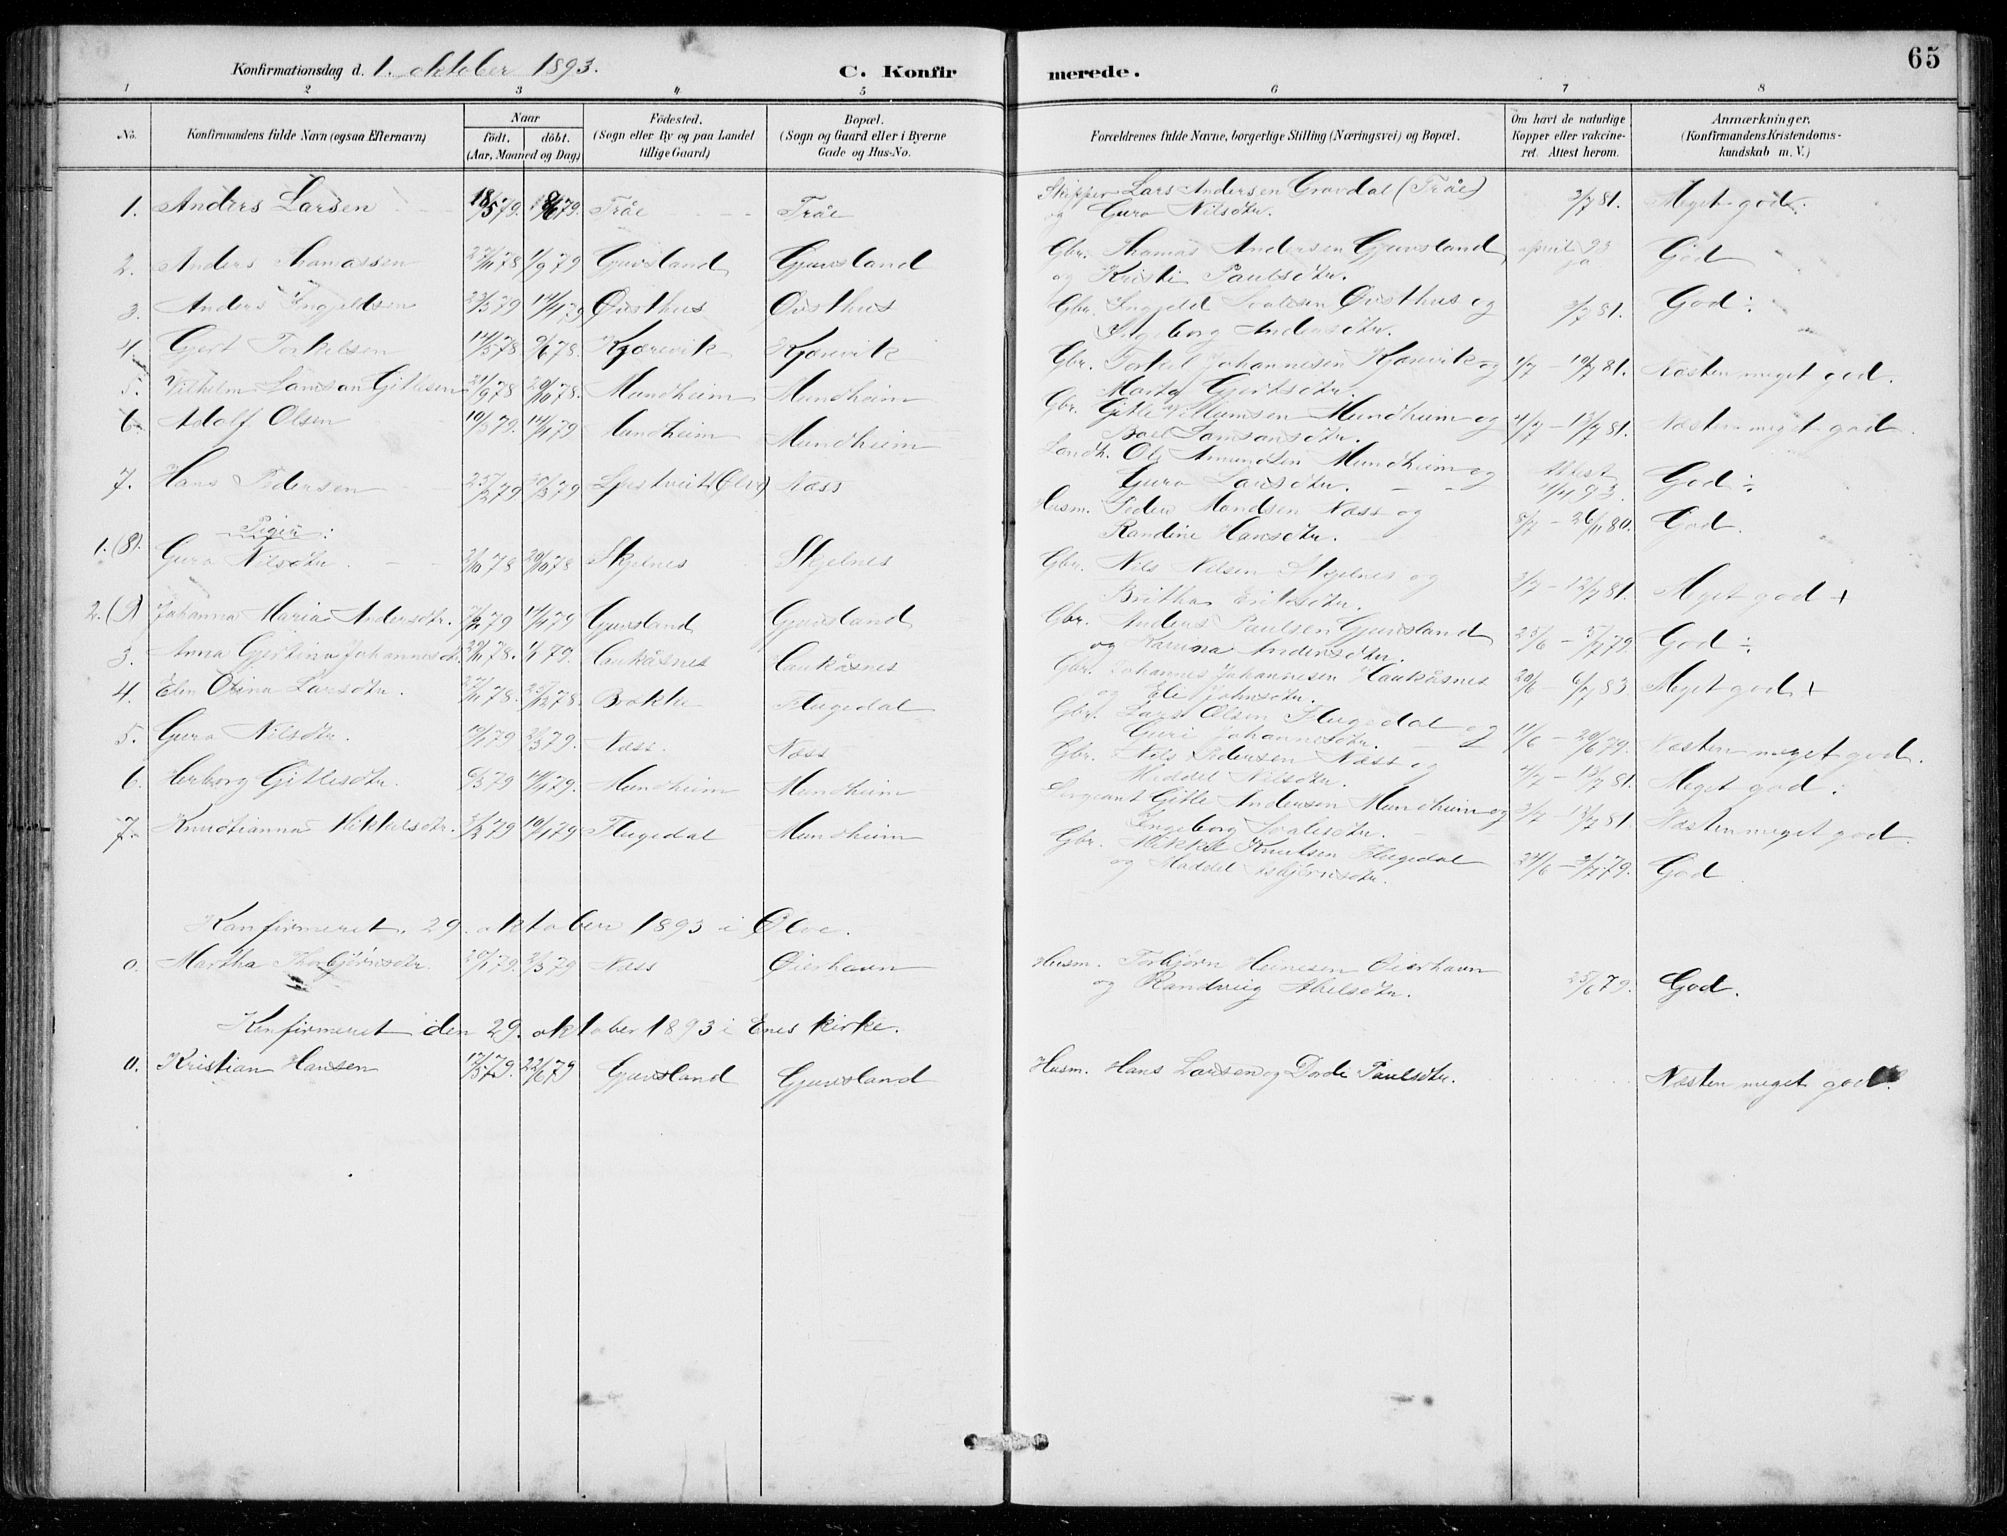 65
Konfirmationsdag d. 1. oktober 1893. C. Konfirmerede.
1 2 3 4 5 6 7 8
No. Konfirmandens fulde Navn (ogsaa Efternavn) Naar födt. döbt. (Aar, Maaned og Dag) Födested. (Sogn eller By og paa Landet tillige Gaard) Bopæl. (Sogn og Gaard eller i Byerne Gade og Hus-No. Forældrenes fulde Navne, borgerlige Stilling (Næringsvei) og Bopæl. Om havt de naturlige Kopper eller vakcineret. Attest herom. Anmærkninger. (Konfirmandens Kristendomskundskab m. V.)
1. Anders Larsen 18/5 79. 8/6 79. Tråe Tråe Skipper Lars Andersen Gravdal (Tråe) og Guro Nilsdtr. 3/7 81. Meget god.
2. Anders Thomassen 78 79 Gjuvsland Gjuvsland Gbr. Thomas Andersen Gjuvsland og Kristi Paulsdtr. april 93 ja God
3. Anders Ingjeldsen 23/3 79 14/4 79 Øvsthus Øvsthus Gbr. Ingjeld Salesen Øvsthus og Ingeborg Andersdtr. 3/7 81. God ÷
4. Gjert Torkelsen 14/5 78. 9/6 78. Kjærevik Kjærevik Gbr. Torkel Johannesen Kjærevik og Marta Gjertsdtr. 1/7 – 10/7 81. Næsten meget god.
5. Vilhelm Samson Gitlesen 21/9 78 20/10 78. Mundheim Mundheim Gbr. Gitle Villumsen Mundheim og Boel Samsonsdtr. 4/7 – 13/7 81. Næsten meget god.
6. Adolf Olsen 10/3 79. 14/4 79 Mundheim Mundheim Landh. Ole Amundsen Mundheim og Guro Larsdtr. Attest 11/4 93. God ÷
7. Hans Pedersen 25/2 79 30/3 79 Ljostveit (Ølve) Næss Husm. Peder Mondsen Næss og Randine Hansdtr. 8/7 – 26/11 80. God.
Piger:
1. (8). Guro Nilsdtr. 2/10 78 20/10 78 Skjelnes Skjelnes Gbr. Nils Nilsen Skjelnes og Britha Eriksdtr. 3/7 – 12/7 81. Meget god +
2. (9) Johanna Maria Andersdtr. 79 14/4 79 Gjuvsland Gjuvsland Gbr. Anders Paulsen Gjuvsland og Karina Andersdtr. 25/6 – 5/7 79. God ÷
3. Anna Gjertina Johannesdt. 78. 79. Haukåsnes Haukåsnes Gbr. Johannes Johannesen Haukåsnes og Eli Johnsdtr. 20/6 – 6/7 83 Meget god +
4. Elen Olina Larsdtr. 27/11 78. 25/12 78. Bakke Flugedal Gbr. Lars Olsen Flugedal og Guri Johannesdtr. 11/6 – 20/6 79. Næsten meget god.
5. Guro Nilsdtr. 79 2/3 79. Næss. Næss Gbr. Nils Pedersen Næss og Maddel Nilsdtr. 4/7 – 13/7 81. Meget god.
6. Herborg Gitlesdtr. 6/3 79 14/4 79. Mundheim Mundheim Sergeant Gitle Andersen Mundheim og Ingeborg Salesdtr. 3/7 – 13/7 81. Næsten meget god.
7. Knudtianna Mikkelsdtr. 79 79 Flugedal Mundheim Gbr. Mikkel Knutsen Flugedal og Maddel Asbjørnsdtr. 24/6 – 3/7 79. God
Konfirmeret 29. oktober 1893 i Ølve.
0. Martha Thorbjörnsdtr. 79. 2/3 79 Næss Øierhavn Husm. Torbjørn Heinesen Øierhavn og Randveig Abelsdtr. 25/6 79. God.
Konfirmeret den 29. oktober 1893 i Enes kirke.
0. Kristian Hansen 17/5 79. 22/6 79 Gjuvsland Gjuvsland Husm. Hans Larsen og Dorde Paulsdtr. Næsten meget god.